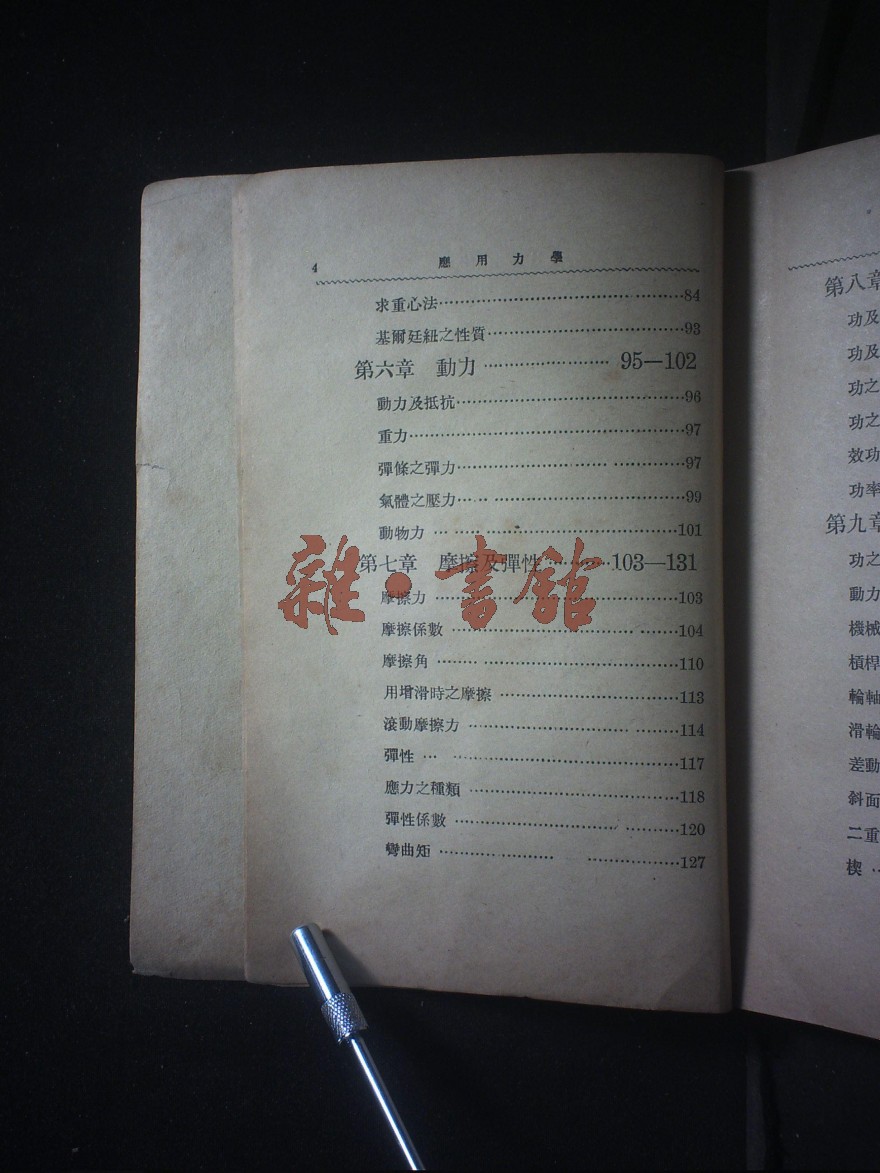 4 應用力學
求重心法……84
基爾廷紐之性質……93
第六章 動力……95—102
動力及抵抗……96
重力……97
彈條之彈力……97
氣體之壓力……99
動物力……101
第七章 摩擦及彈性……103—131
摩擦力……103
摩擦係數……104
摩擦角……110
用增滑時之摩擦……113
滾動摩擦力……114
彈性……117
應力之種類……118
彈性係數……120
彎曲矩……127
雜·書館
第八章
功及
功及
功之
功之
效功
功率
第九章
功之
動力
機械
槓桿
輪軸
滑輪
差動
斜面
二重
楔